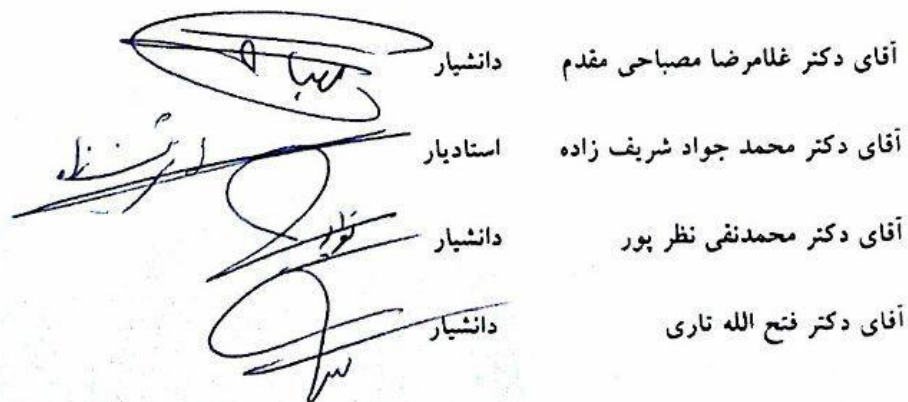 آقای دکتر غلامرضا مصباحی مقدم دانشیار
آقای دکتر محمد جواد شریف زاده استادیار
آقای دکتر محمدنقی نظر پور دانشیار
آقای دکتر فتح الله تاری دانشیار